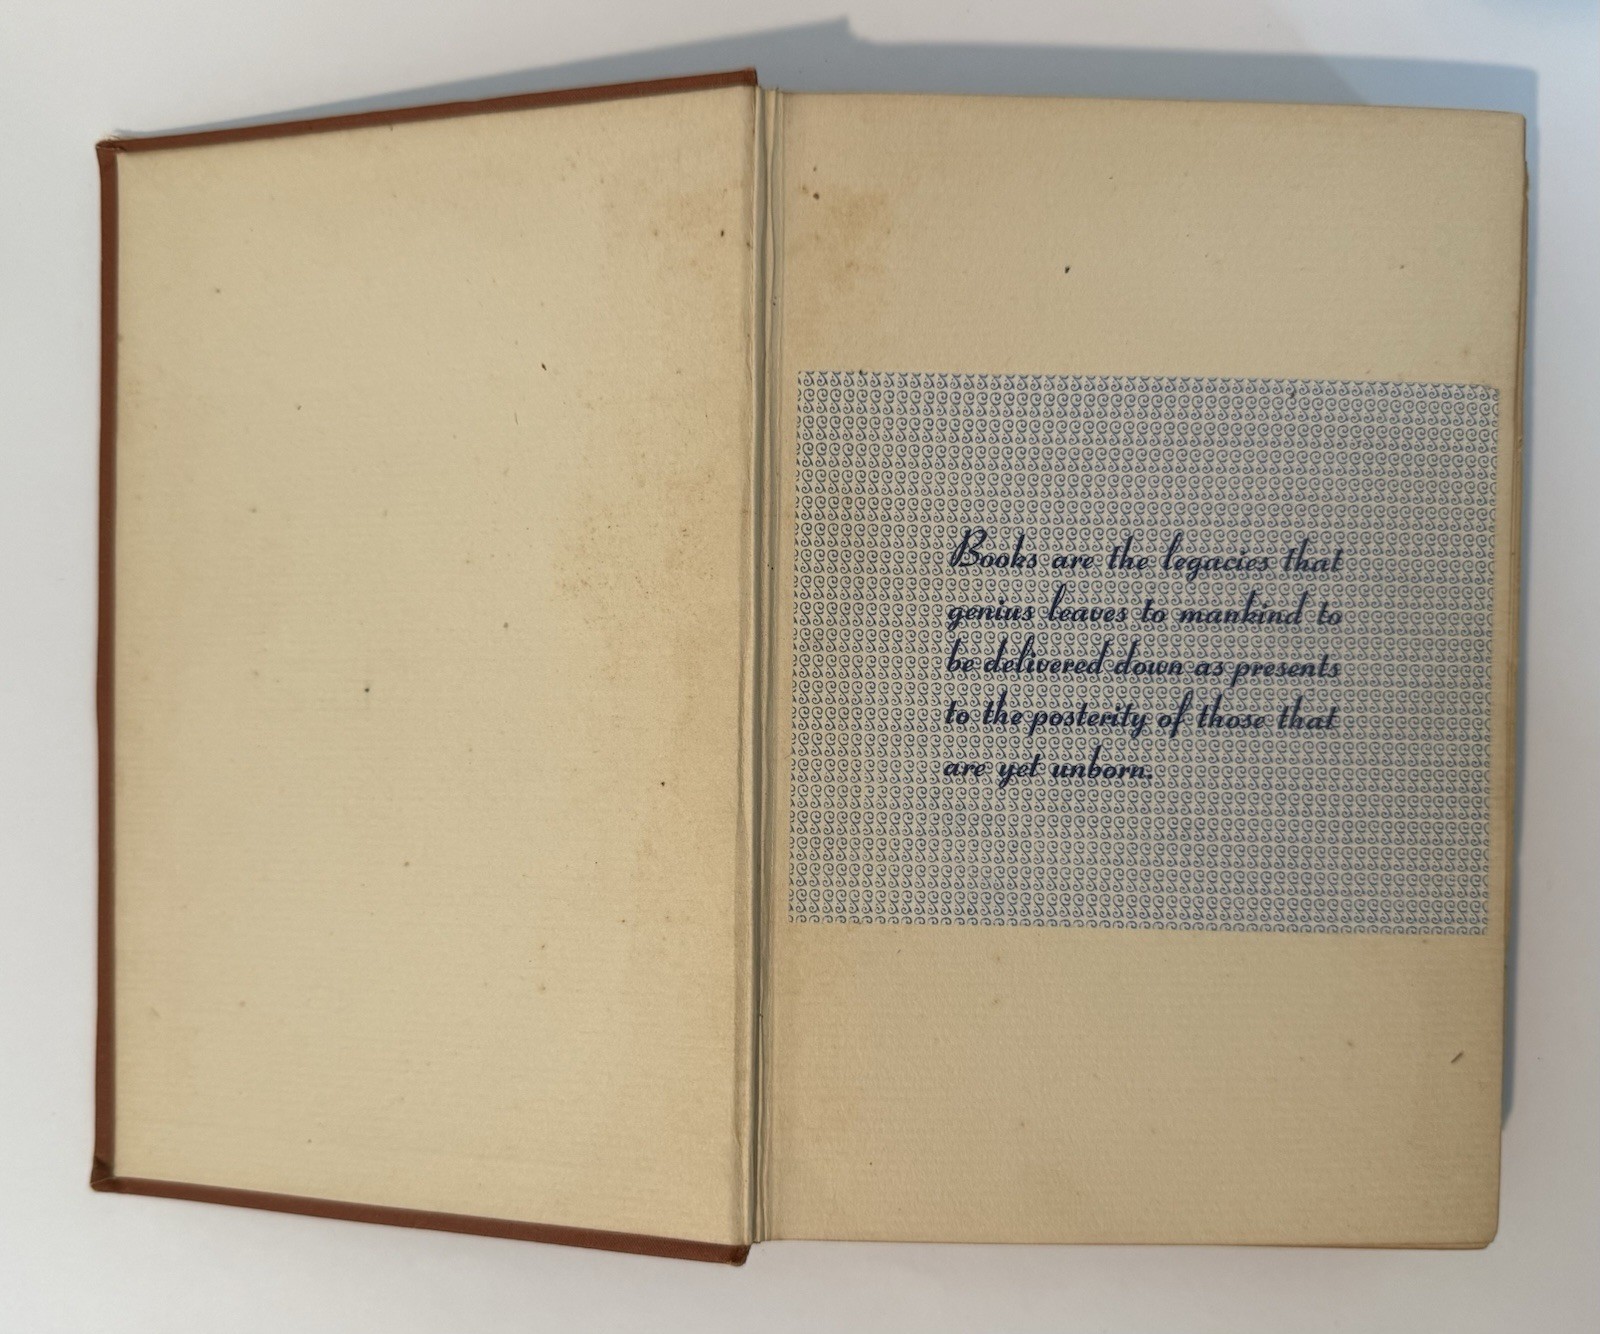 Books are the legacies that
genius leaves to mankind to
be delivered down as presents
to the posterity of those that
are yet unborn.